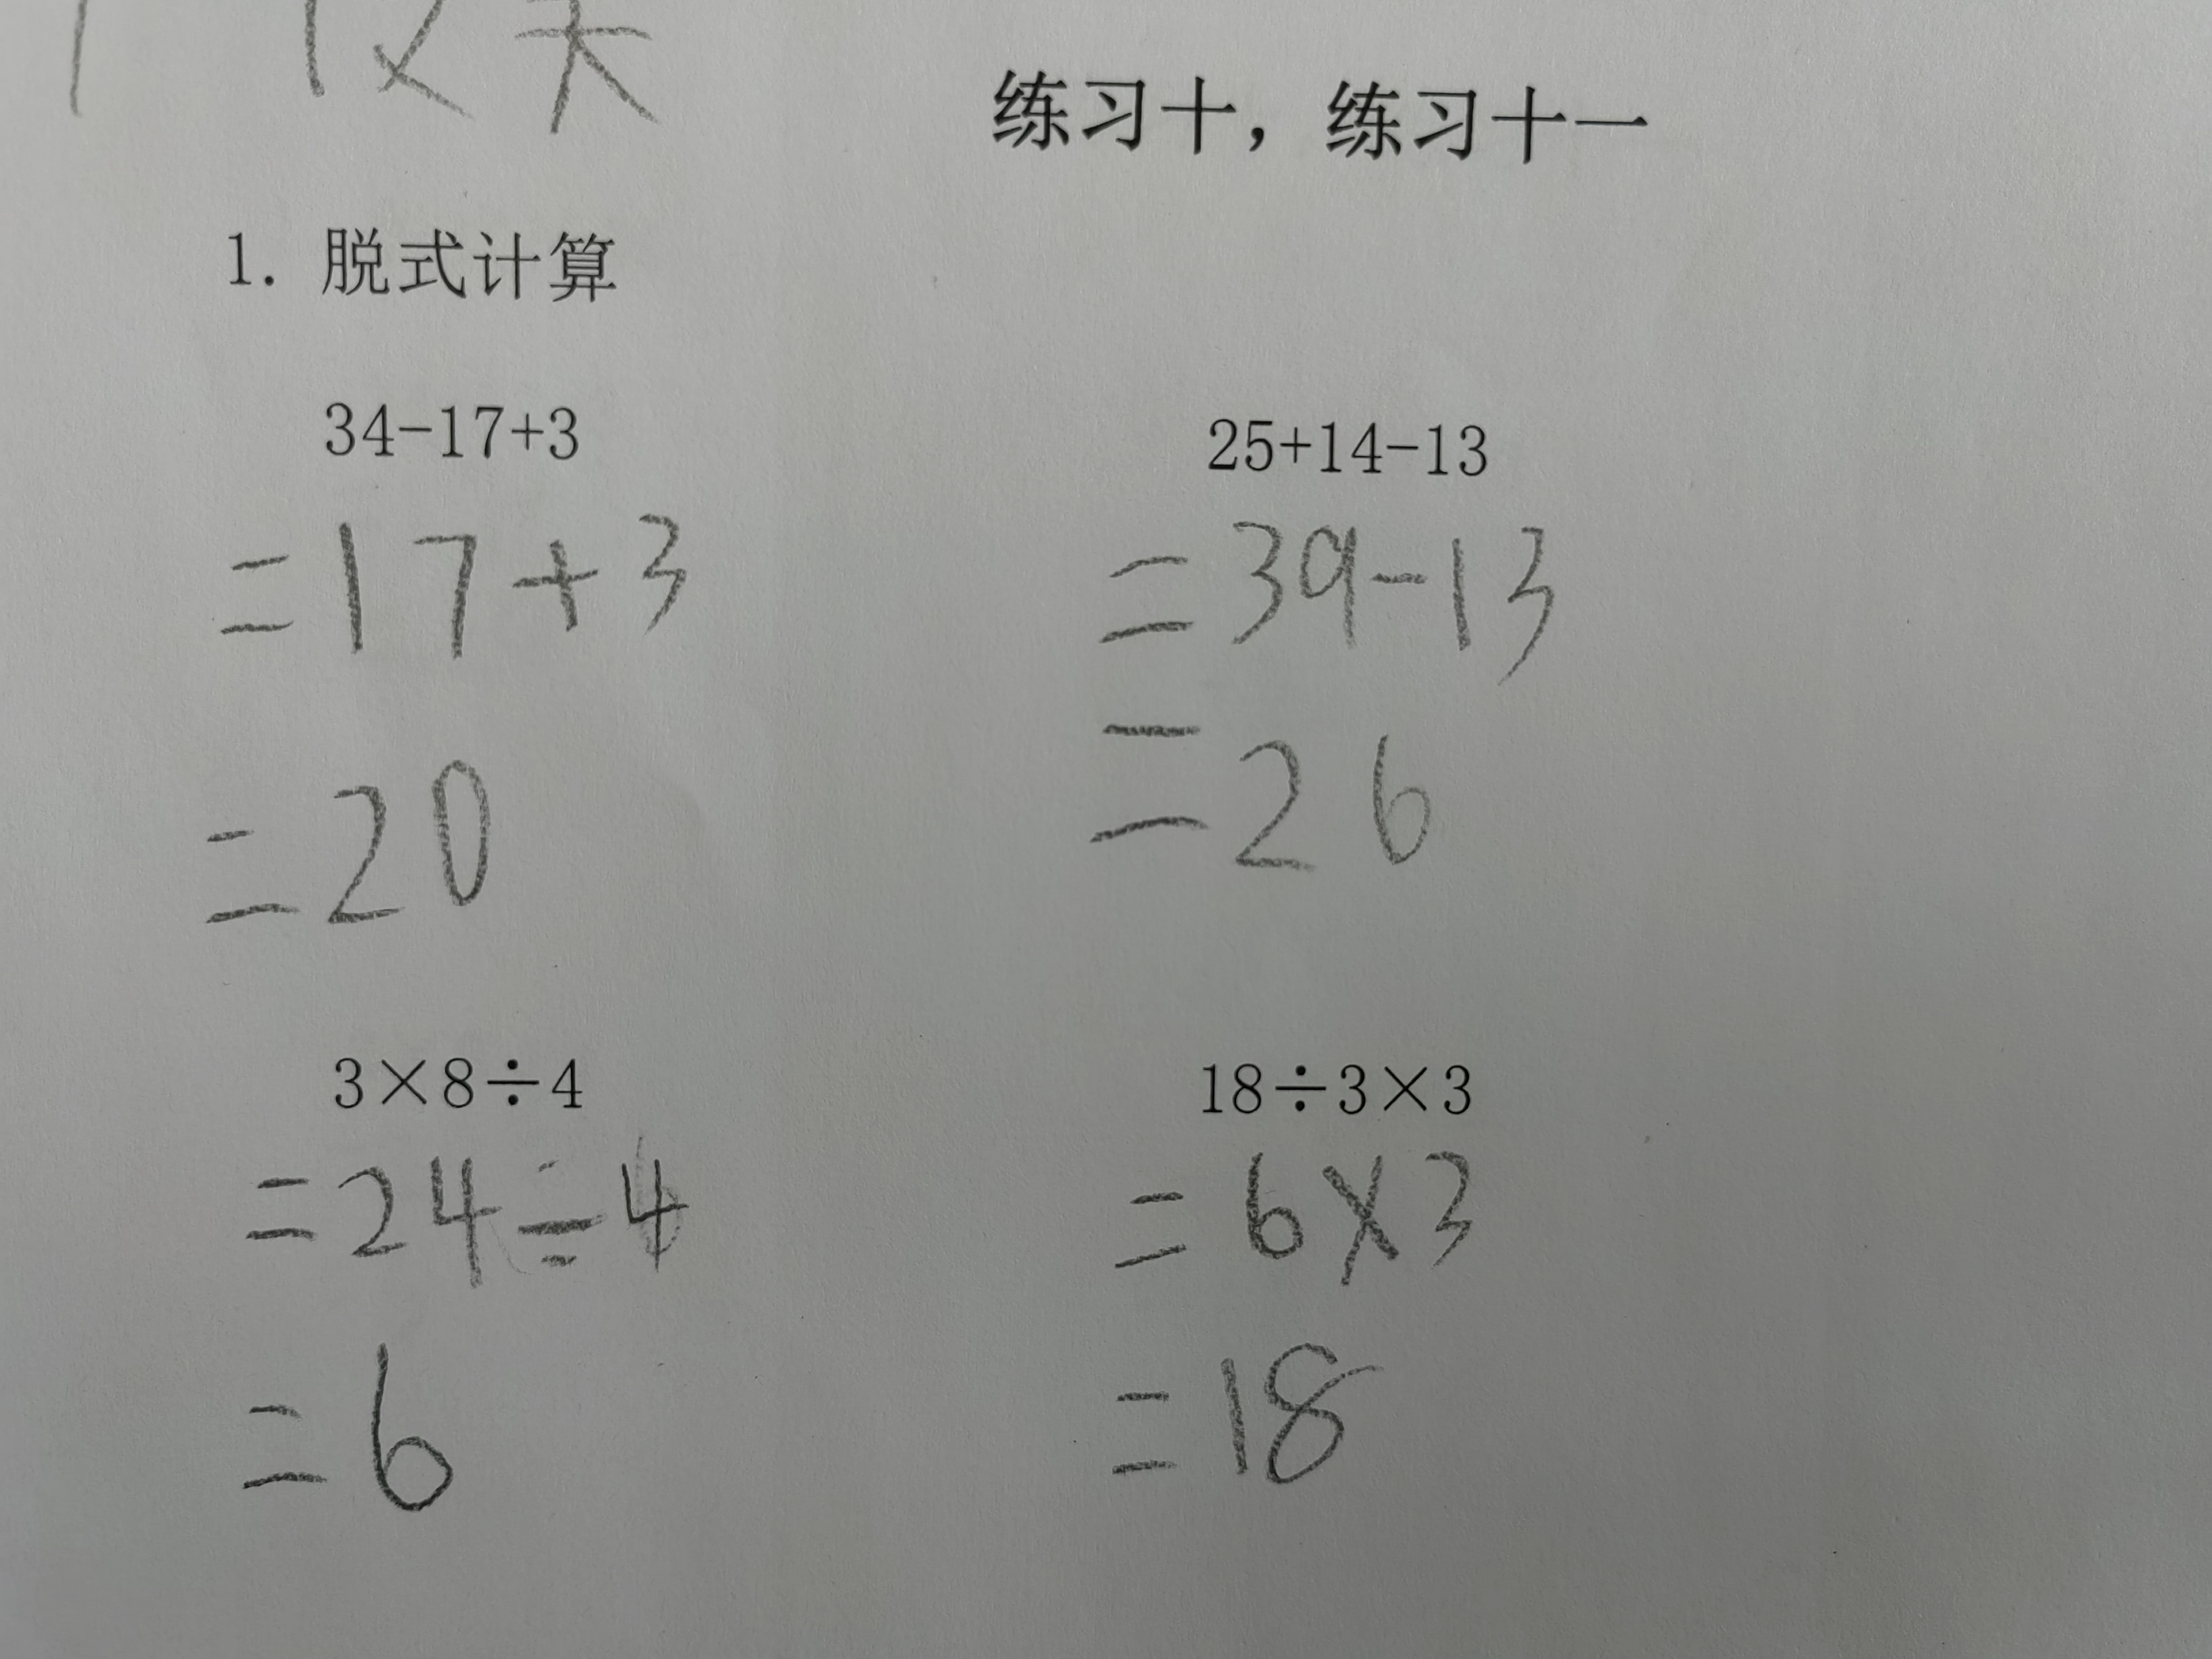 练习十，练习十一
1. 脱式计算
34-17+3
=17+3
=20
25+14-13
=39-13
=26
3×8÷4
=24÷4
=6
18÷3×3
=6×3
=18